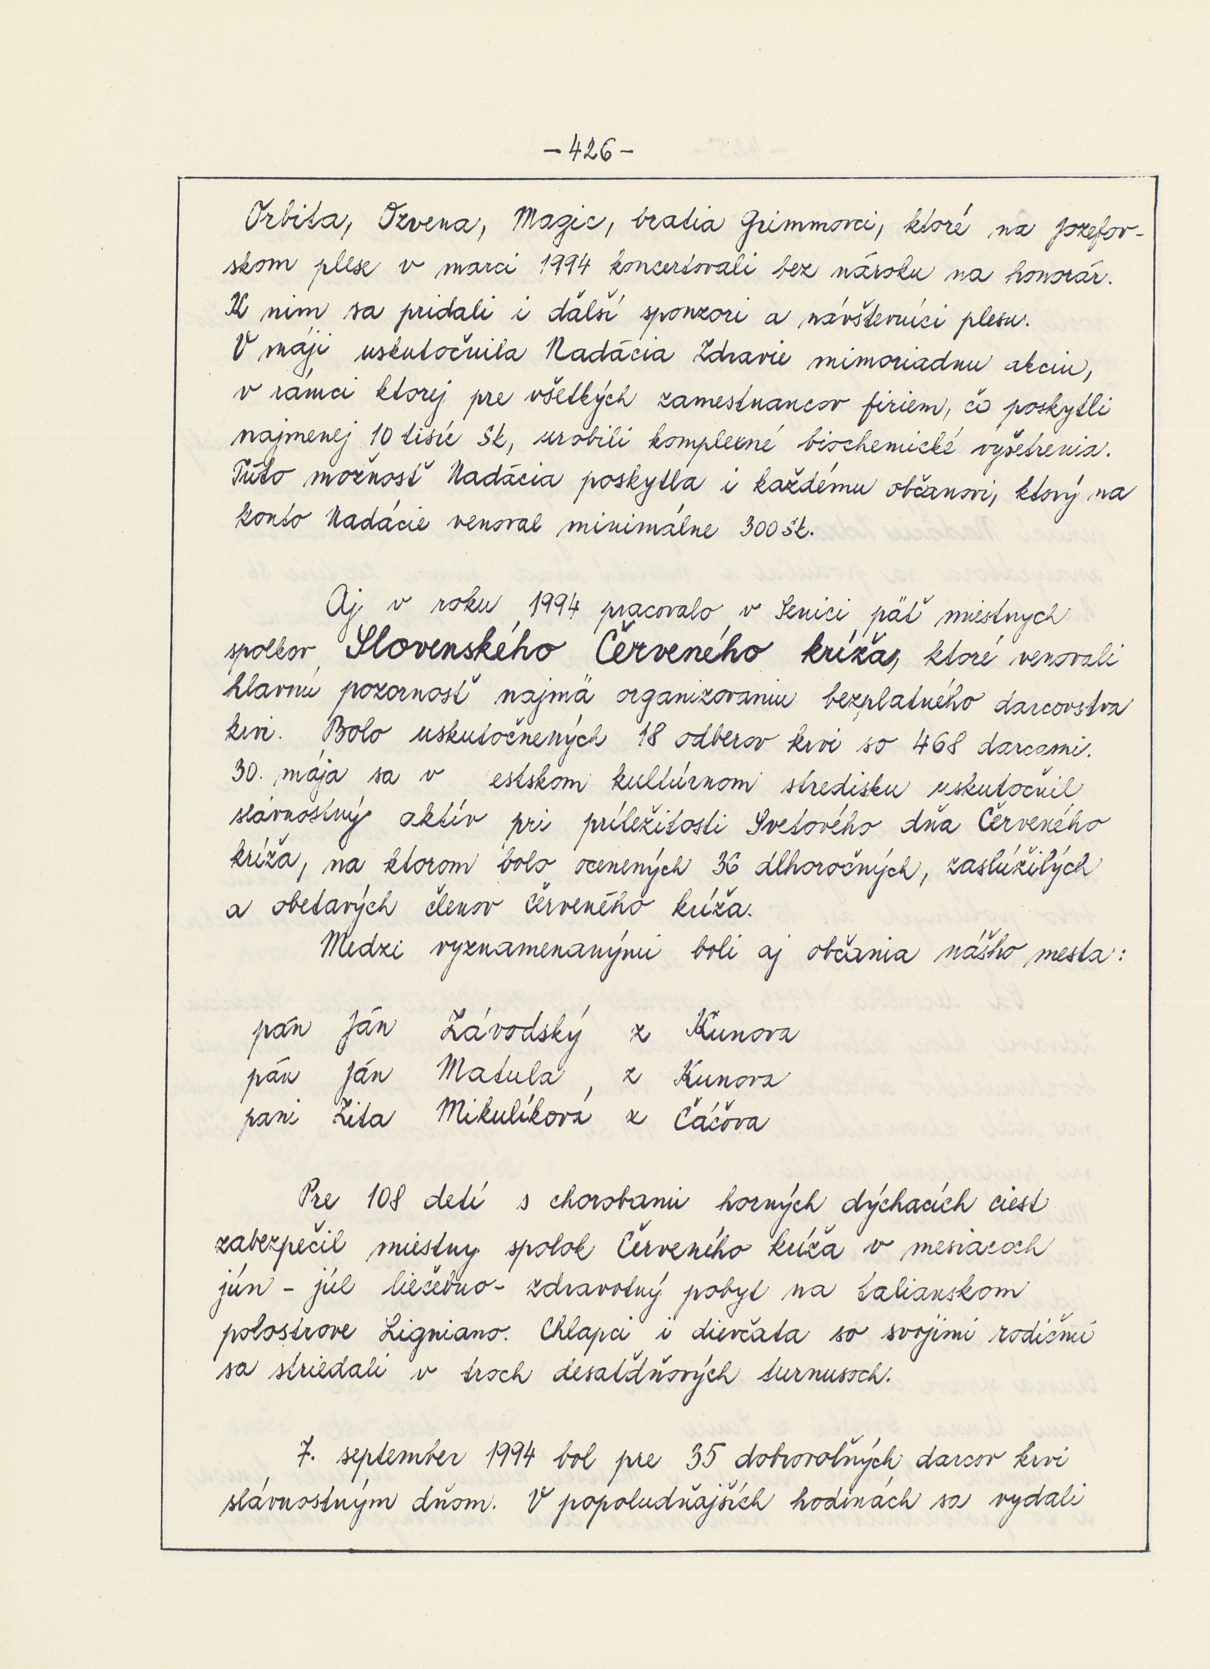 -426-
Orbita, Ozvena, Magic, bratia Grimmovci, ktoré na Jozefov-
skom plese v marci 1994 koncertovali bez nároku na honorár.
K nim sa pridali i ďalší sponzori a návštevníci plesu.
V máji uskutočnila Nadácia Zdravie mimoriadnu akciu,
v rámci ktorej pre všetkých zamestnancov firiem, čo poskytli
najmenej 10 tisíc Sk, urobili komplexné biochemické vyšetrenia.
Túto možnosť Nadácia poskytla i každému občanovi, ktorý na
konto Nadácie venoval minimálne 300 Sk.
Aj v roku 1994 pracovalo v Senici päť miestnych
spolkov Slovenského Červeného kríža, ktoré venovali
hlavnú pozornosť najmä organizovaniu bezplatného darcovstva
krvi. Bolo uskutočnených 18 odberov krvi so 468 darcami.
30. mája sa v estskom kultúrnom stredisku uskutočnil
slávnostný aktív pri príležitosti Svetového dňa Červeného
kríža, na ktorom bolo ocenených 36 dlhoročných, zaslúžilých
a obetavých členov Červeného kríža.
Medzi vyznamenanými boli aj občania nášho mesta:
pán Ján Závodský z Kunova
pán Ján Matula, z Kunova
pani Zita Mikulíková z Čáčova
Pre 108 detí s chorobami horných dýchacích ciest
zabezpečil miestny spolok Červeného kríža v mesiacoch
jún - júl liečebno- zdravotný pobyt na talianskom
polostrove Ligniano. Chlapci i dievčata so svojimi rodičmi
sa striedali v troch desaťdňových turnusoch.
7. september 1994 bol pre 35 dobrovoľných darcov krvi
slávnostným dňom. V popoludňajších hodinách sa vydali